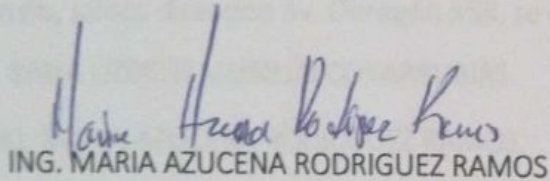 Maria Azucena Rodriguez Ramos
ING. MARIA AZUCENA RODRIGUEZ RAMOS